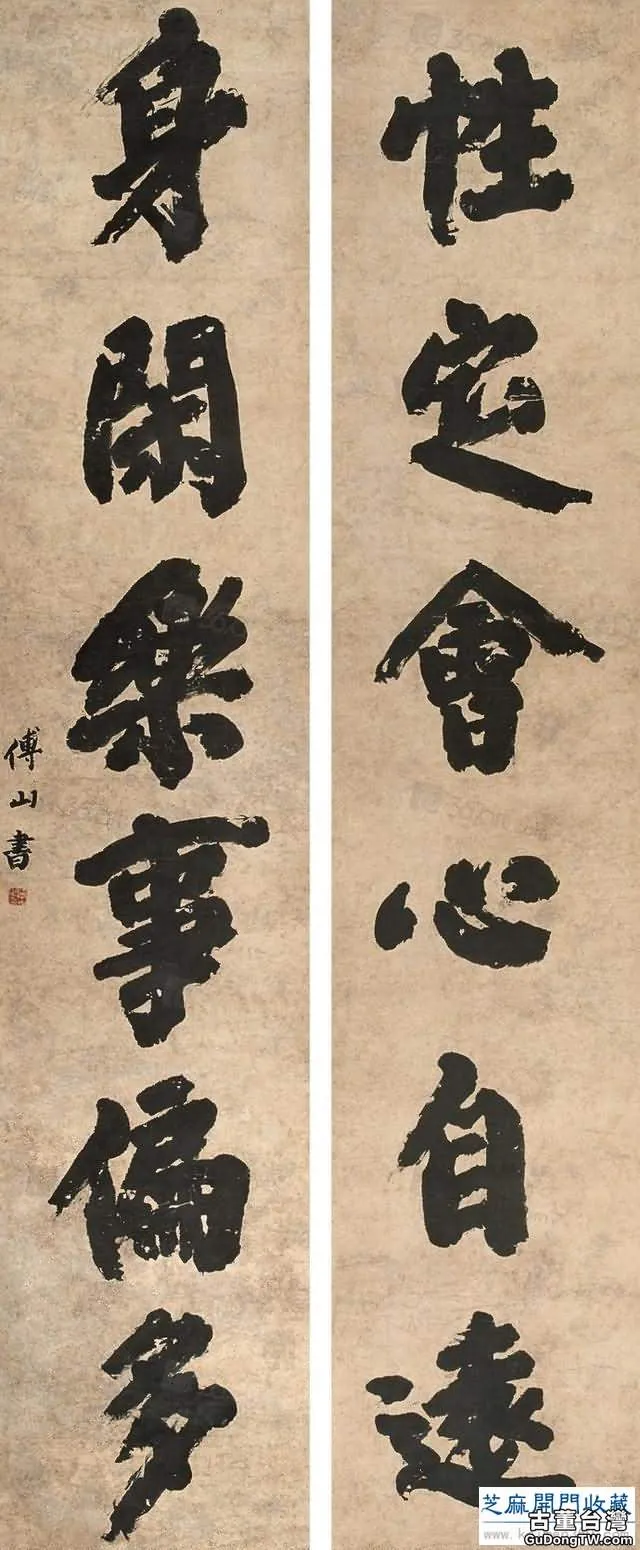 性定會心自遠
身閑樂事偏多
傅山書
芝麻開門收藏
古董台灣
GuDongTW.com